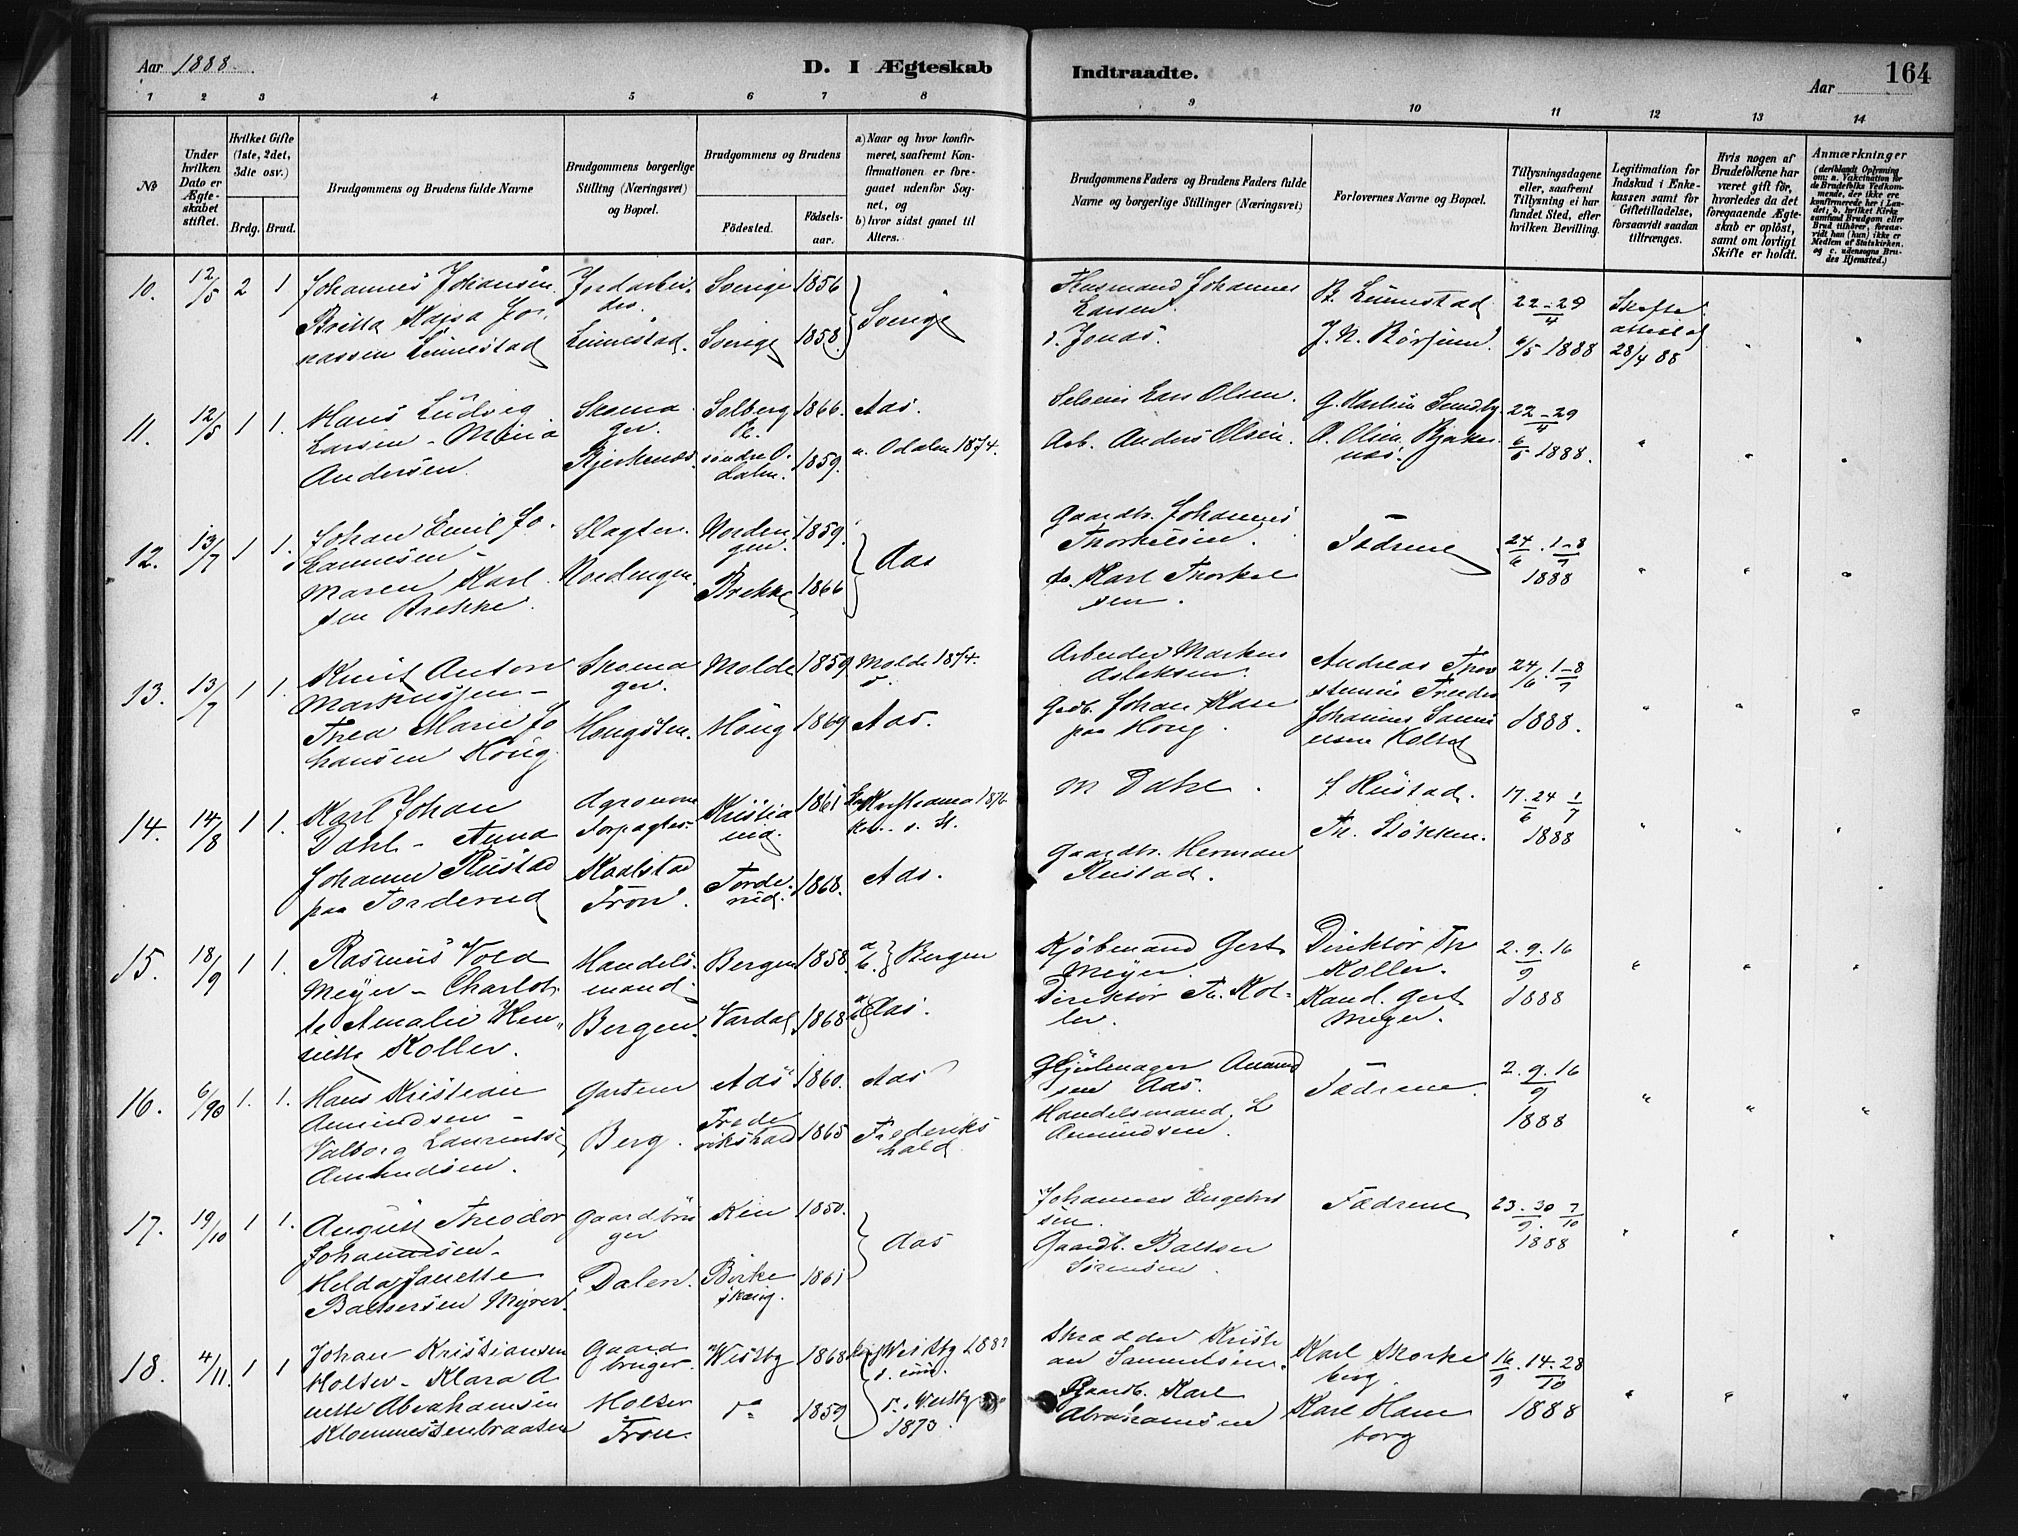 Aar 1888.
D. I Ægteskab
Indtraadte.
Aar
164
1 2 3 4 5 6 7 8 9 10 11 12 13 14
No
Under hvilken Dato er Ægteskabet stiftet.
Hvilket Gifte (1ste, 2det, 3die osv.)
Brdg. Brud.
Brudgommens og Brudens fulde Navne
Brudgommens borgerlige Stilling (Næringsvei) og Bopæl.
Brudgommens og Brudens
Fødested.
Fødselsaar.
a) Naar og hvor konfirmeret, saafremt Konfirmationen er foregaaet udenfor Sognet, og
b) hvor sidst gaaet til Alters.
Brudgommens Faders og Brudens Faders fulde Navne og borgerlige Stillinger (Næringsvei)
Forlovernes Navne og Bopæl.
Tillysningsdagene eller, saafremt Tillysning ei har fundet Sted, efter hvilken Bevilling.
Legitimation for Indskud i Enkekassen samt for Giftetilladelse, forsaavidt saadan tiltrænges.
Hvis nogen af Brudefolkene har været gift før, hvorledes da det foregaaende Ægteskab er opløst, samt om lovligt Skifte er holdt.
Anmærkninger
(deriblandt Oplysning om: a. Vakcination for de Brudefolks Vedkommende, der ikke ere konfirmerede her i Landet; b. hvilket Kirkesamfund Brudgom eller Brud tilhører, forsaavidt han (hun) ikke er Medlem af Statskirken, og c. udensogns Brudes Hjemsted.)
10. 12/5 2 1 Johannes Johansen Jordarbeider. Sverige 1856
Britta Kajsa Jonassen Linnestad Linnestad. Sverige 1858. Sverige
Husmand Johannes Larsen. B. Linnestad 22-29/4
Jonas. 6/5 1888 28/4 88
11. 12/5 1 1. Hans Ludvig Larsen - Skomager. Solberg 1866. Aas.
Andersen Bjerkenæs. søndre Odalen. 1859. Odalen 1874.
Lars Olsen. 22-29/4
Arb. Anders Olsen. O. Olsen Bjerkenæs. 6/5 1888.
12. 13/7 1 1. Johan Emil Johannesen - Slagter. Nordengen. 1859.
Maren Karlsen Brekke. Nordengen. Brekke 1866 Aas
Gaardbr. Johannes Thorkelsen. Fædrene 24/6. 1-8/7
do. Karl Thorkelsen. 1888
13. 13/7 1 1. Knut Anton Markussen - Skomager. Molde 1859 Molde 1874.
Thea Marie Johansen Houg Hougsten. Houg 1869 Aas.
Arbeider Markus Aslaksen. Andreas 24/6. 1-8/7
Johan paa Houg. Johannes 1888.
14. 14/8 1 1. Karl Johan Dahl - Anna Agronom Forpagter Kristiania 1861 1876
Johanne Rustad paa Forderud Kaalstad Fron. Forderud. 1868. Aas.
M Dahl. J Rustad. 17. 24/6 1/7
Gaardbr. Herman Rustad. Th. Stokken. 1888
15. 18/9 1 1. Rasmus Vold Meyer - Charlotte Amalie Henriette Koller. Handelsmand. Bergen 1858. a b. Bergen
Bergen. Vardal 1868 Aas.
Kjøbmand Gert Meyer. Direktør Th Koller. 2. 9. 16/9
Direktør Th. Koller. Kand. Gert Meyer. 1888
16. 6/90 1. 1. Hans Kristian Amundsen - Gartner Aas 1860. Aas
Valborg Laurentse Amundsen. Berg. Frederikstad 1865 Frederikshald
Hjulmager Amundsen Aas. Fædrene. 2. 9. 16/9
Handelsmand L Amundsen. 1888
17. 19/10 1 1. August Theodor Johannesen - Gaardbruger 1850.
Helda Janette Baltsersen Myrer. Dalen. Birkeskaug. 1861 Aas
Johannes Engebretsen. Fædrene 23. 30/9. 7/10
Gaardb. Baltser Sørensen. 1888
18. 4/11. 1 1 Johan Kristiansen Holter - Klara Anette Abrahamsen Klommestenbraaten Gaardbruger Westby 1868 Westby 188
Holter Fron. do 1859 Westby 1873.
Skrædder Kristian Samuelsen. Karl Skorkeberg. 16/9. 14-28/10
Gaardb. Karl Abrahamsen Karl Hamborg 1888